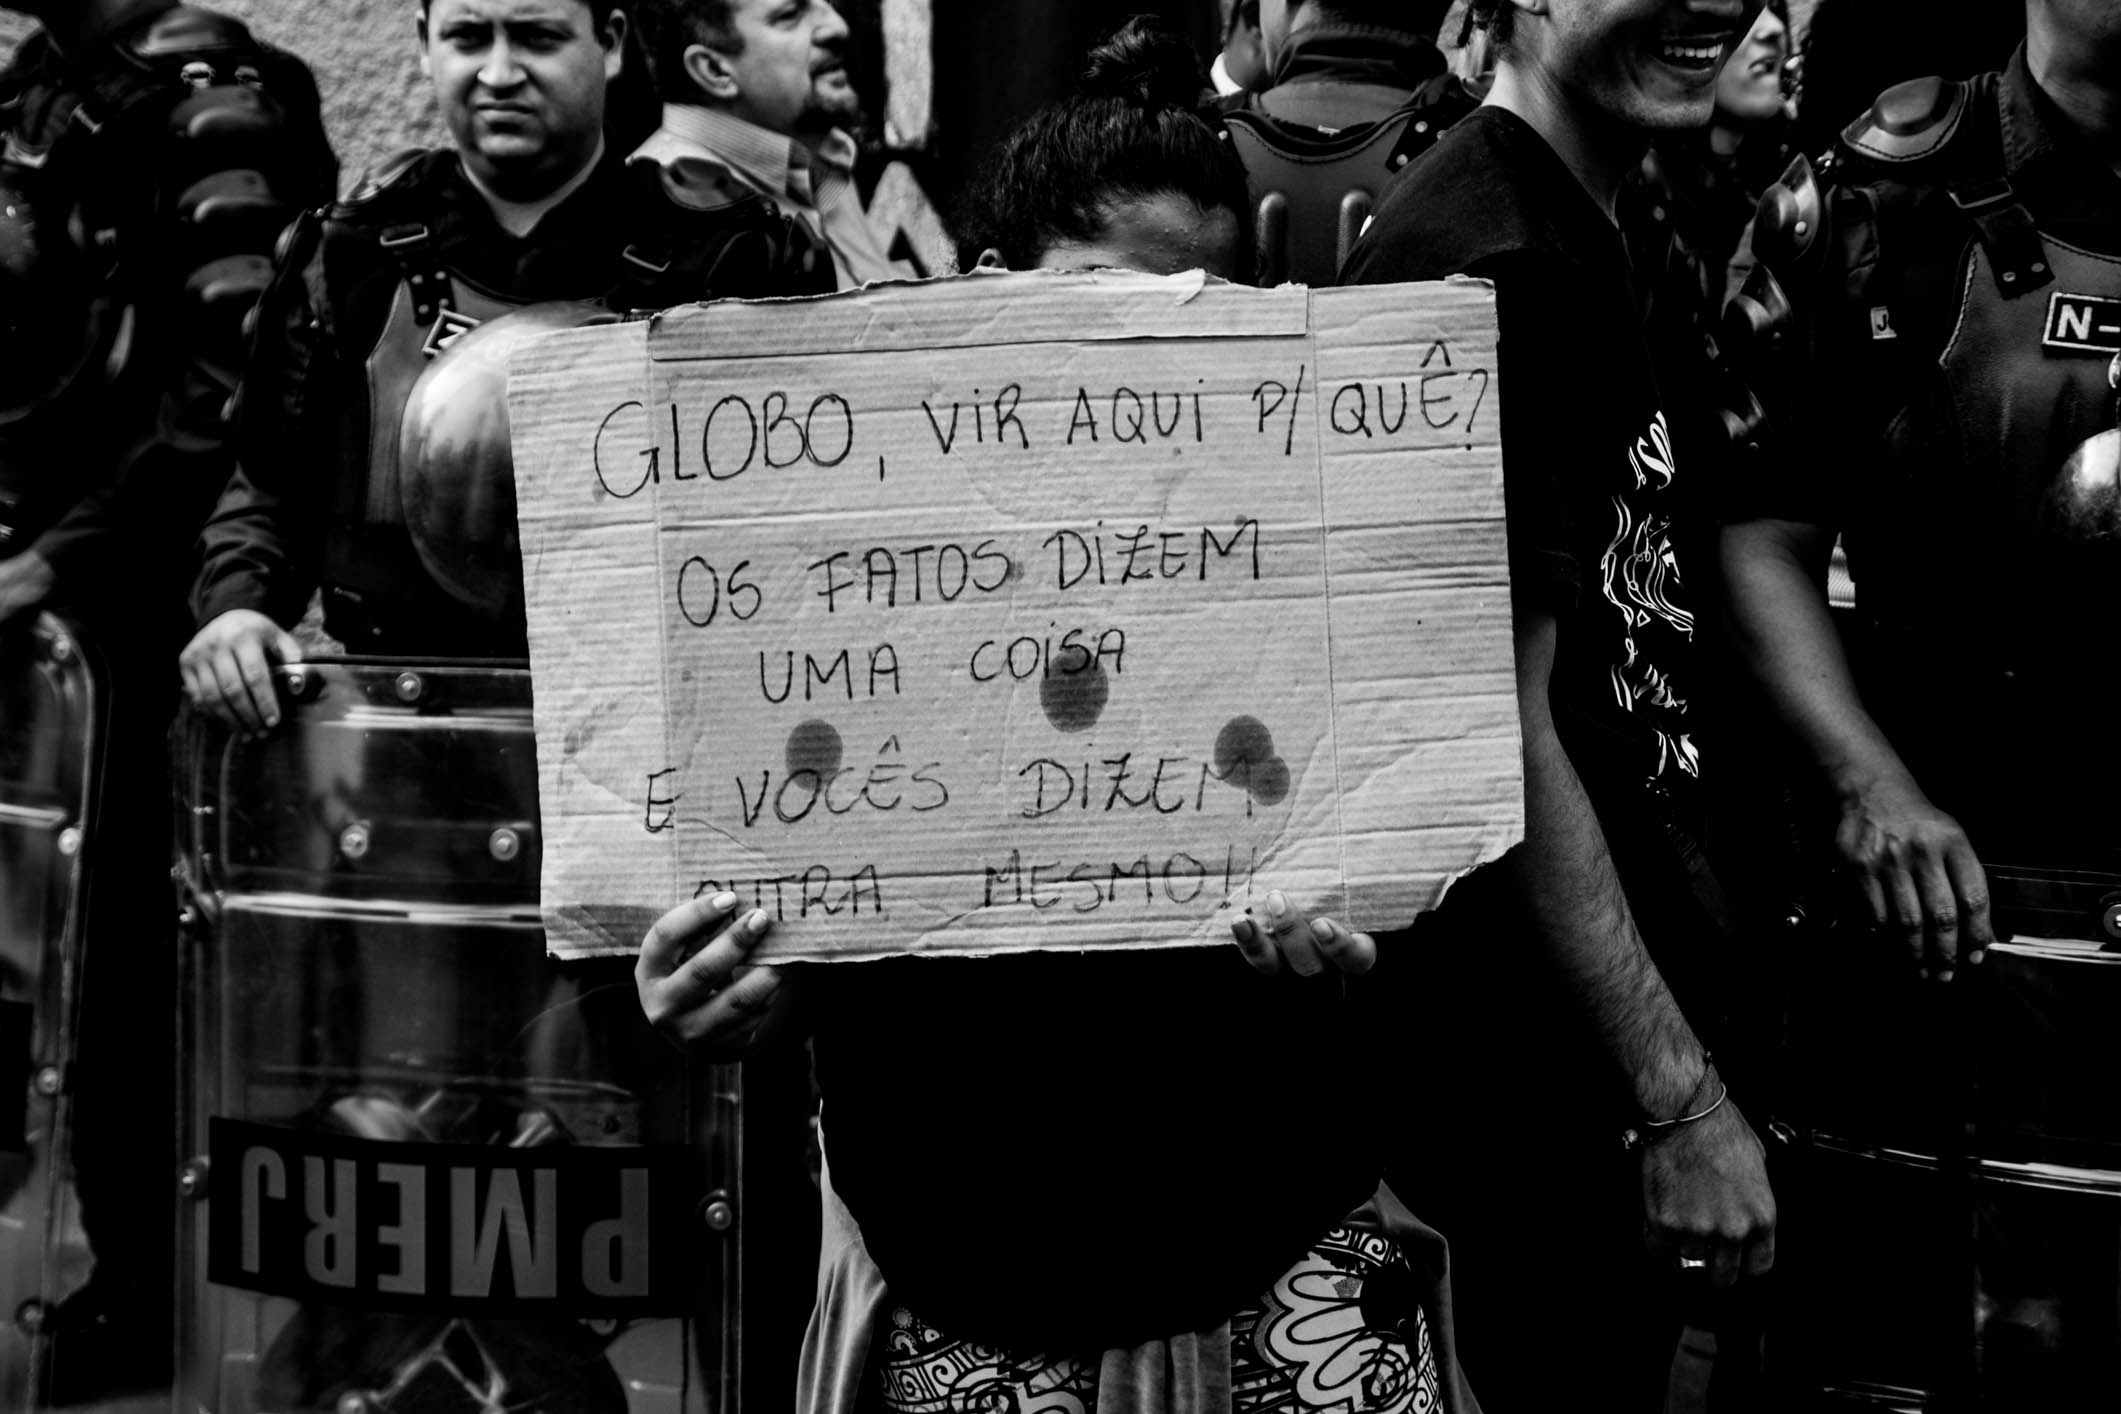 GLOBO, VIR AQUI P/ QUÊ?
OS FATOS DIZEM
UMA COISA
E VOCÊS DIZEM
OUTRA MESMO!!
PMERJ
N-